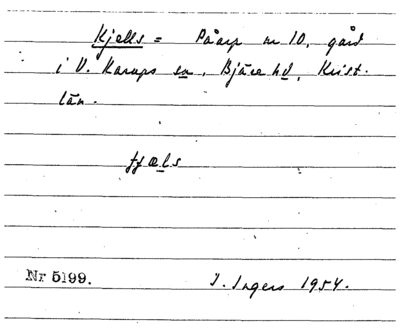 Kjells = Påarp nr 10, gård
i V. Karups sn, Bjäre hd, Krist.
län.
fjæls
Nr 5199.
I. Ingers 1954.